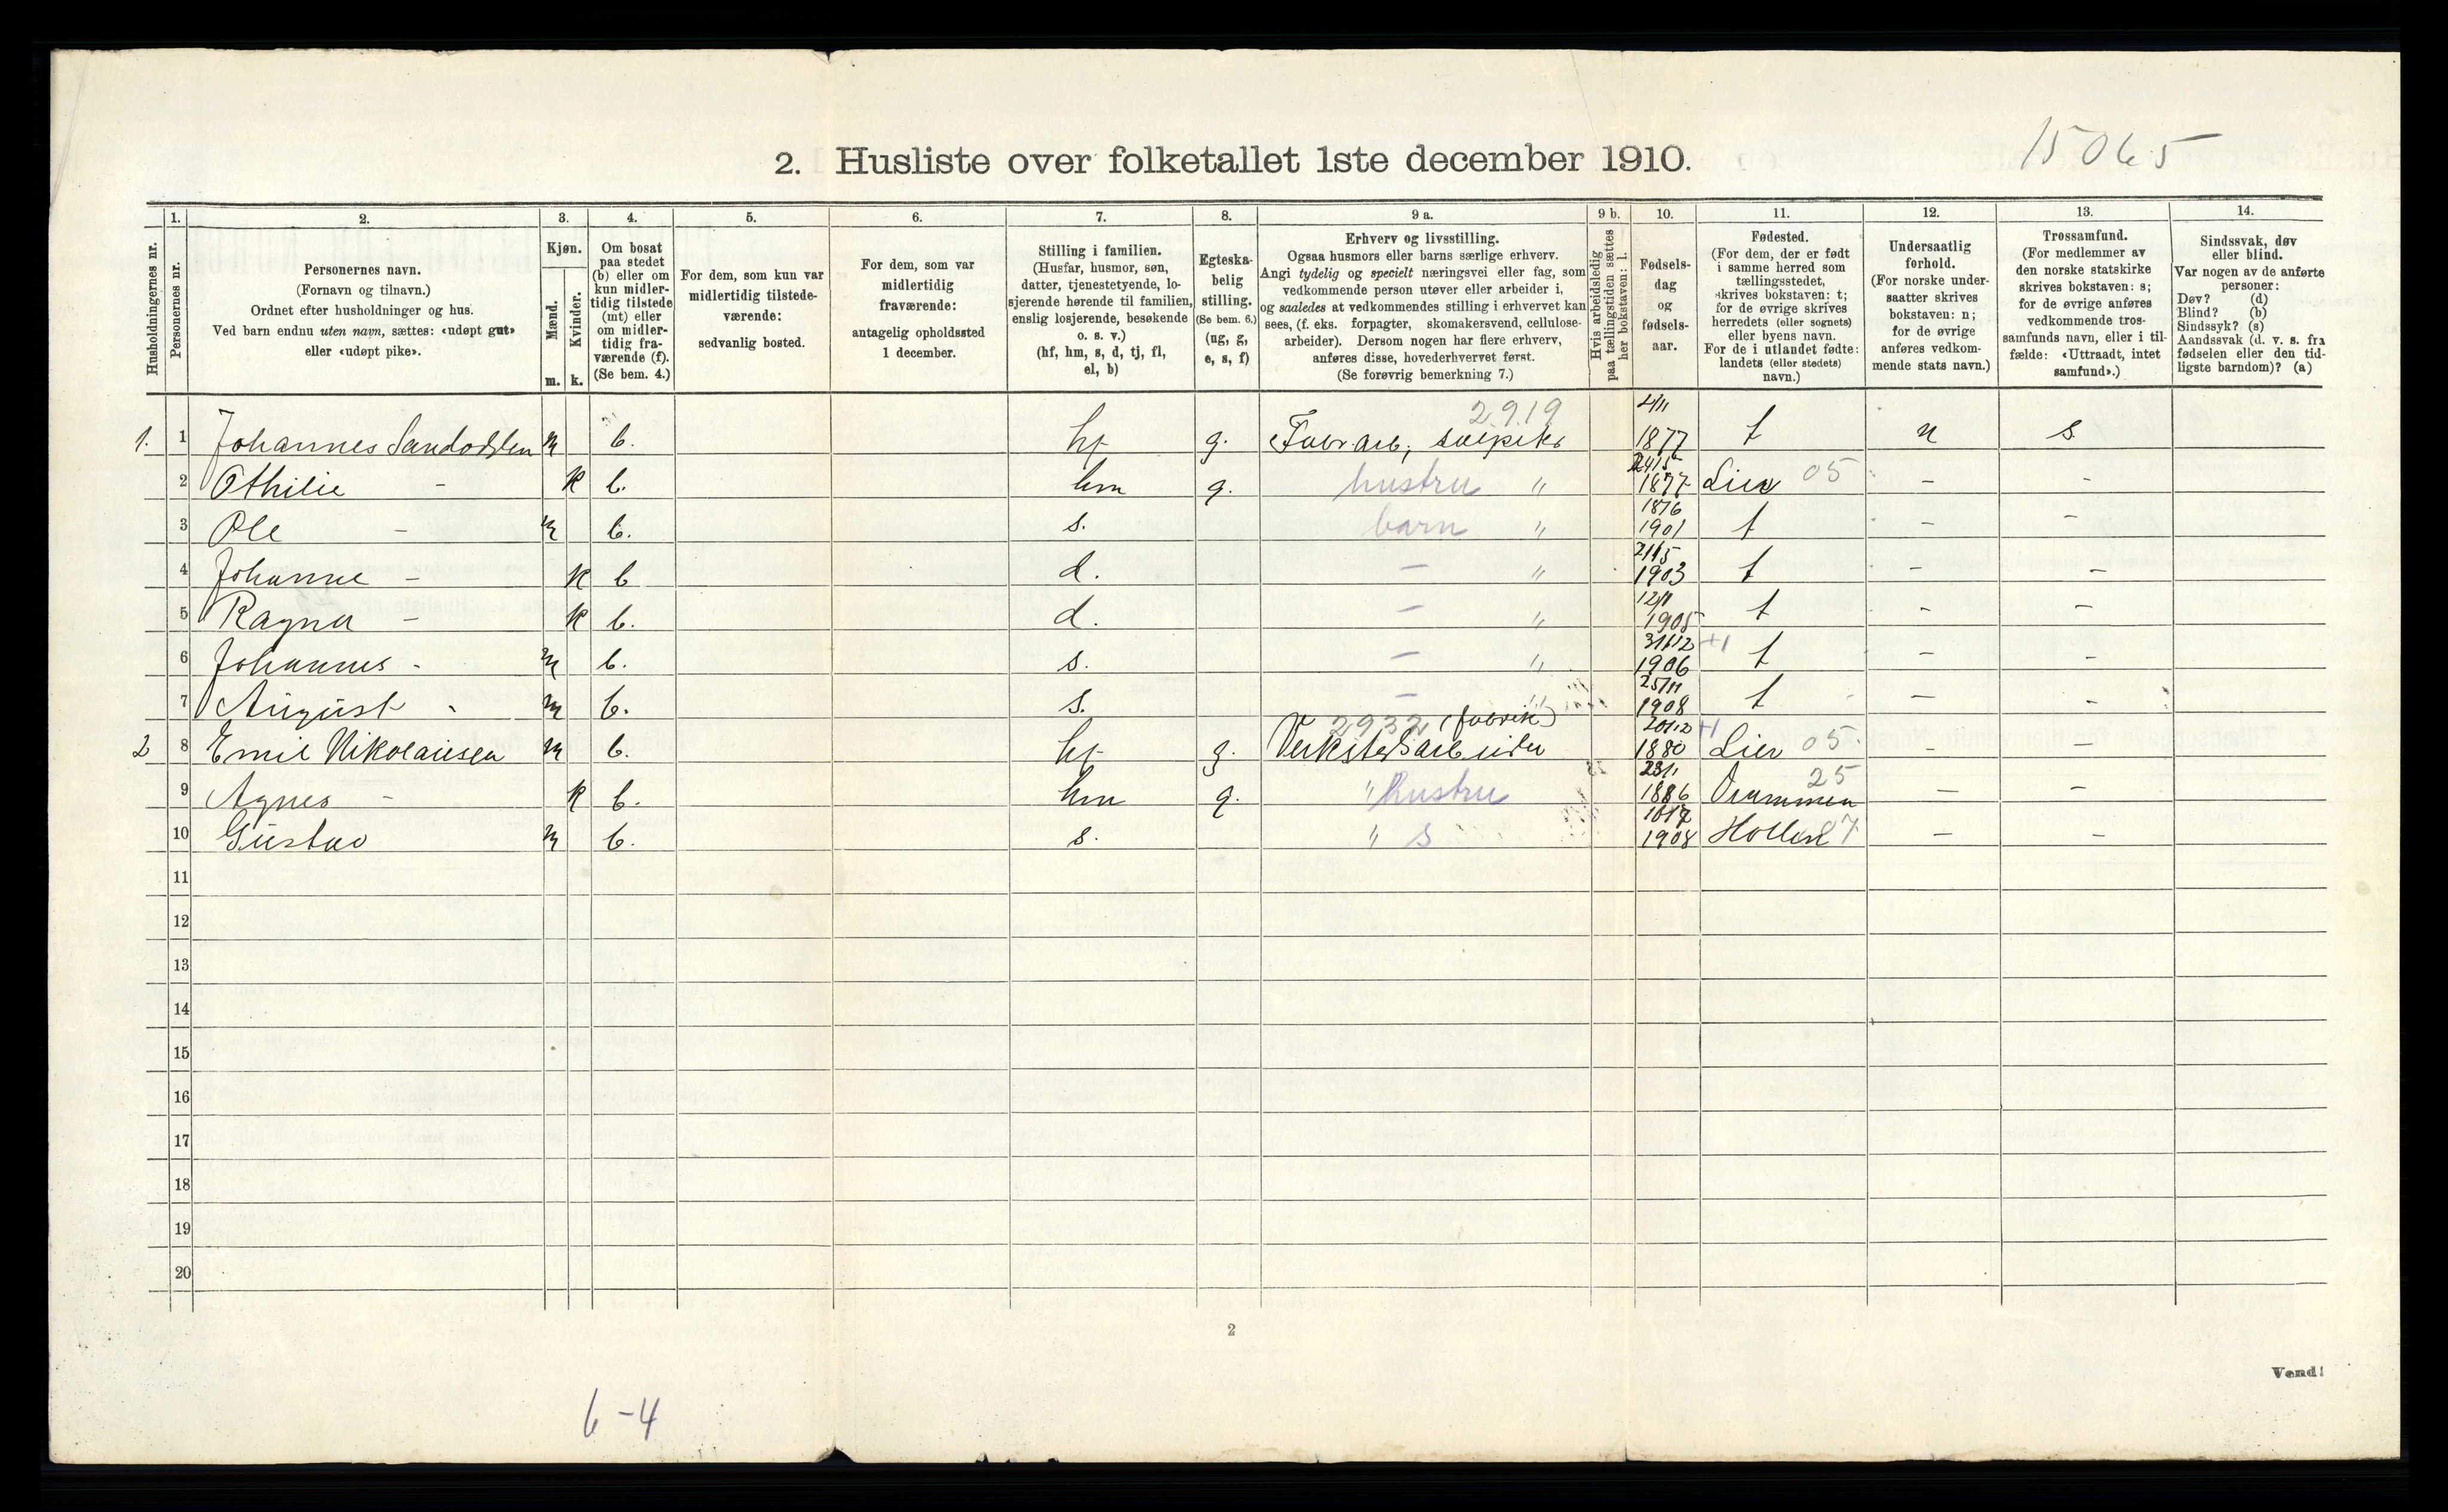 15065
2. Husliste over folketallet 1ste december 1910.
Husholdningernes nr.
1.
Personernes nr.
2.
Personernes navn.
(Fornavn og tilnavn.)
Ordnet efter husholdninger og hus.
Ved barn endnu uten navn, sættes: «udøpt gut»
eller «udøpt pike».
3.
Kjøn.
Mænd.
Kvinder.
m. k.
4.
Om bosat
paa stedet
(b) eller om
kun midler-
tidig tilstede
(mt) eller
om midler-
tidig fra-
værende (f).
(Se bem. 4.)
5.
For dem, som kun var
midlertidig tilstede-
værende:
sedvanlig bosted.
6.
For dem, som var
midlertidig
fraværende:
antagelig opholdssted
1 december.
7.
Stilling i familien.
(Husfar, husmor, søn,
datter, tjenestetyende, lo-
sjerende hørende til familien,
enslig losjerende, besøkende
o. s. v.)
(hf, hm, s, d, tj, fl,
el, b)
8.
Egteska-
belig
stilling.
(Se bem. 6.)
(ug, g,
e, s, f)
9 a.
Erhverv og livsstilling.
Ogsaa husmors eller barns særlige erhverv.
Angi tydelig og specielt næringsvei eller fag, som
vedkommende person utøver eller arbeider i,
og saaledes at vedkommendes stilling i erhvervet kan
sees, (f. eks. forpagter, skomakersvend, cellulose-
arbeider). Dersom nogen har flere erhverv,
anføres disse, hovederhvervet først.
(Se forøvrig bemerkning 7.)
9 b.
Hvis arbeidsledig
paa tællingstiden sættes
her bokstaven: l.
10.
Fødsels-
dag
og
fødsels-
aar.
11.
Fødested.
(For dem, der er født
i samme herred som
tællingsstedet,
skrives bokstaven: t;
for de øvrige skrives
herredets (eller sognets)
eller byens navn.
For de i utlandet fødte:
landets (eller stedets)
navn.)
12.
Undersaatlig
forhold.
(For norske under-
saatter skrives
bokstaven: n;
for de øvrige
anføres vedkom-
mende stats navn.)
13.
Trossamfund.
(For medlemmer av
den norske statskirke
skrives bokstaven: s;
for de øvrige anføres
vedkommende tros-
samfunds navn, eller i til-
fælde: «Uttraadt, intet
samfund».)
14.
Sindssvak, døv
eller blind.
Var nogen av de anførte
personer:
Døv? (d)
Blind? (b)
Sindssyk? (s)
Aandssvak (d. v. s. fra
fødselen eller den tid-
ligste barndom)? (a)
2.9.19
1. 1 Johannes m b. hf g. Fabrarb, 1877 t n s
2 Othilie - k b. hm g. hustru " 1877 Lier 05 - -
3 Ole - m b. s. barn " 1901 t - -
4 Johanne - k b d. - " 1903 t - -
5 Ragna - k b. d. - " 1905 t - -
6 Johannes - m b. s. - " 31/12 1906 +1 t - -
7 August - m b. s. - " 25/11 1908 t - -
2932 (fabrik)
2 8 Emil Nikolaisen m b. hf g. Verkstedsarbeider 1880 +1 Lier 05 - -
9 Agnes - k b. hm g. " hustru 1886 Drammen 25 - -
10 Gustav m b. s. " s 1908 Hollen - -
11
12
13
14
15
16
17
18
19
20
2
Vend!
6-4